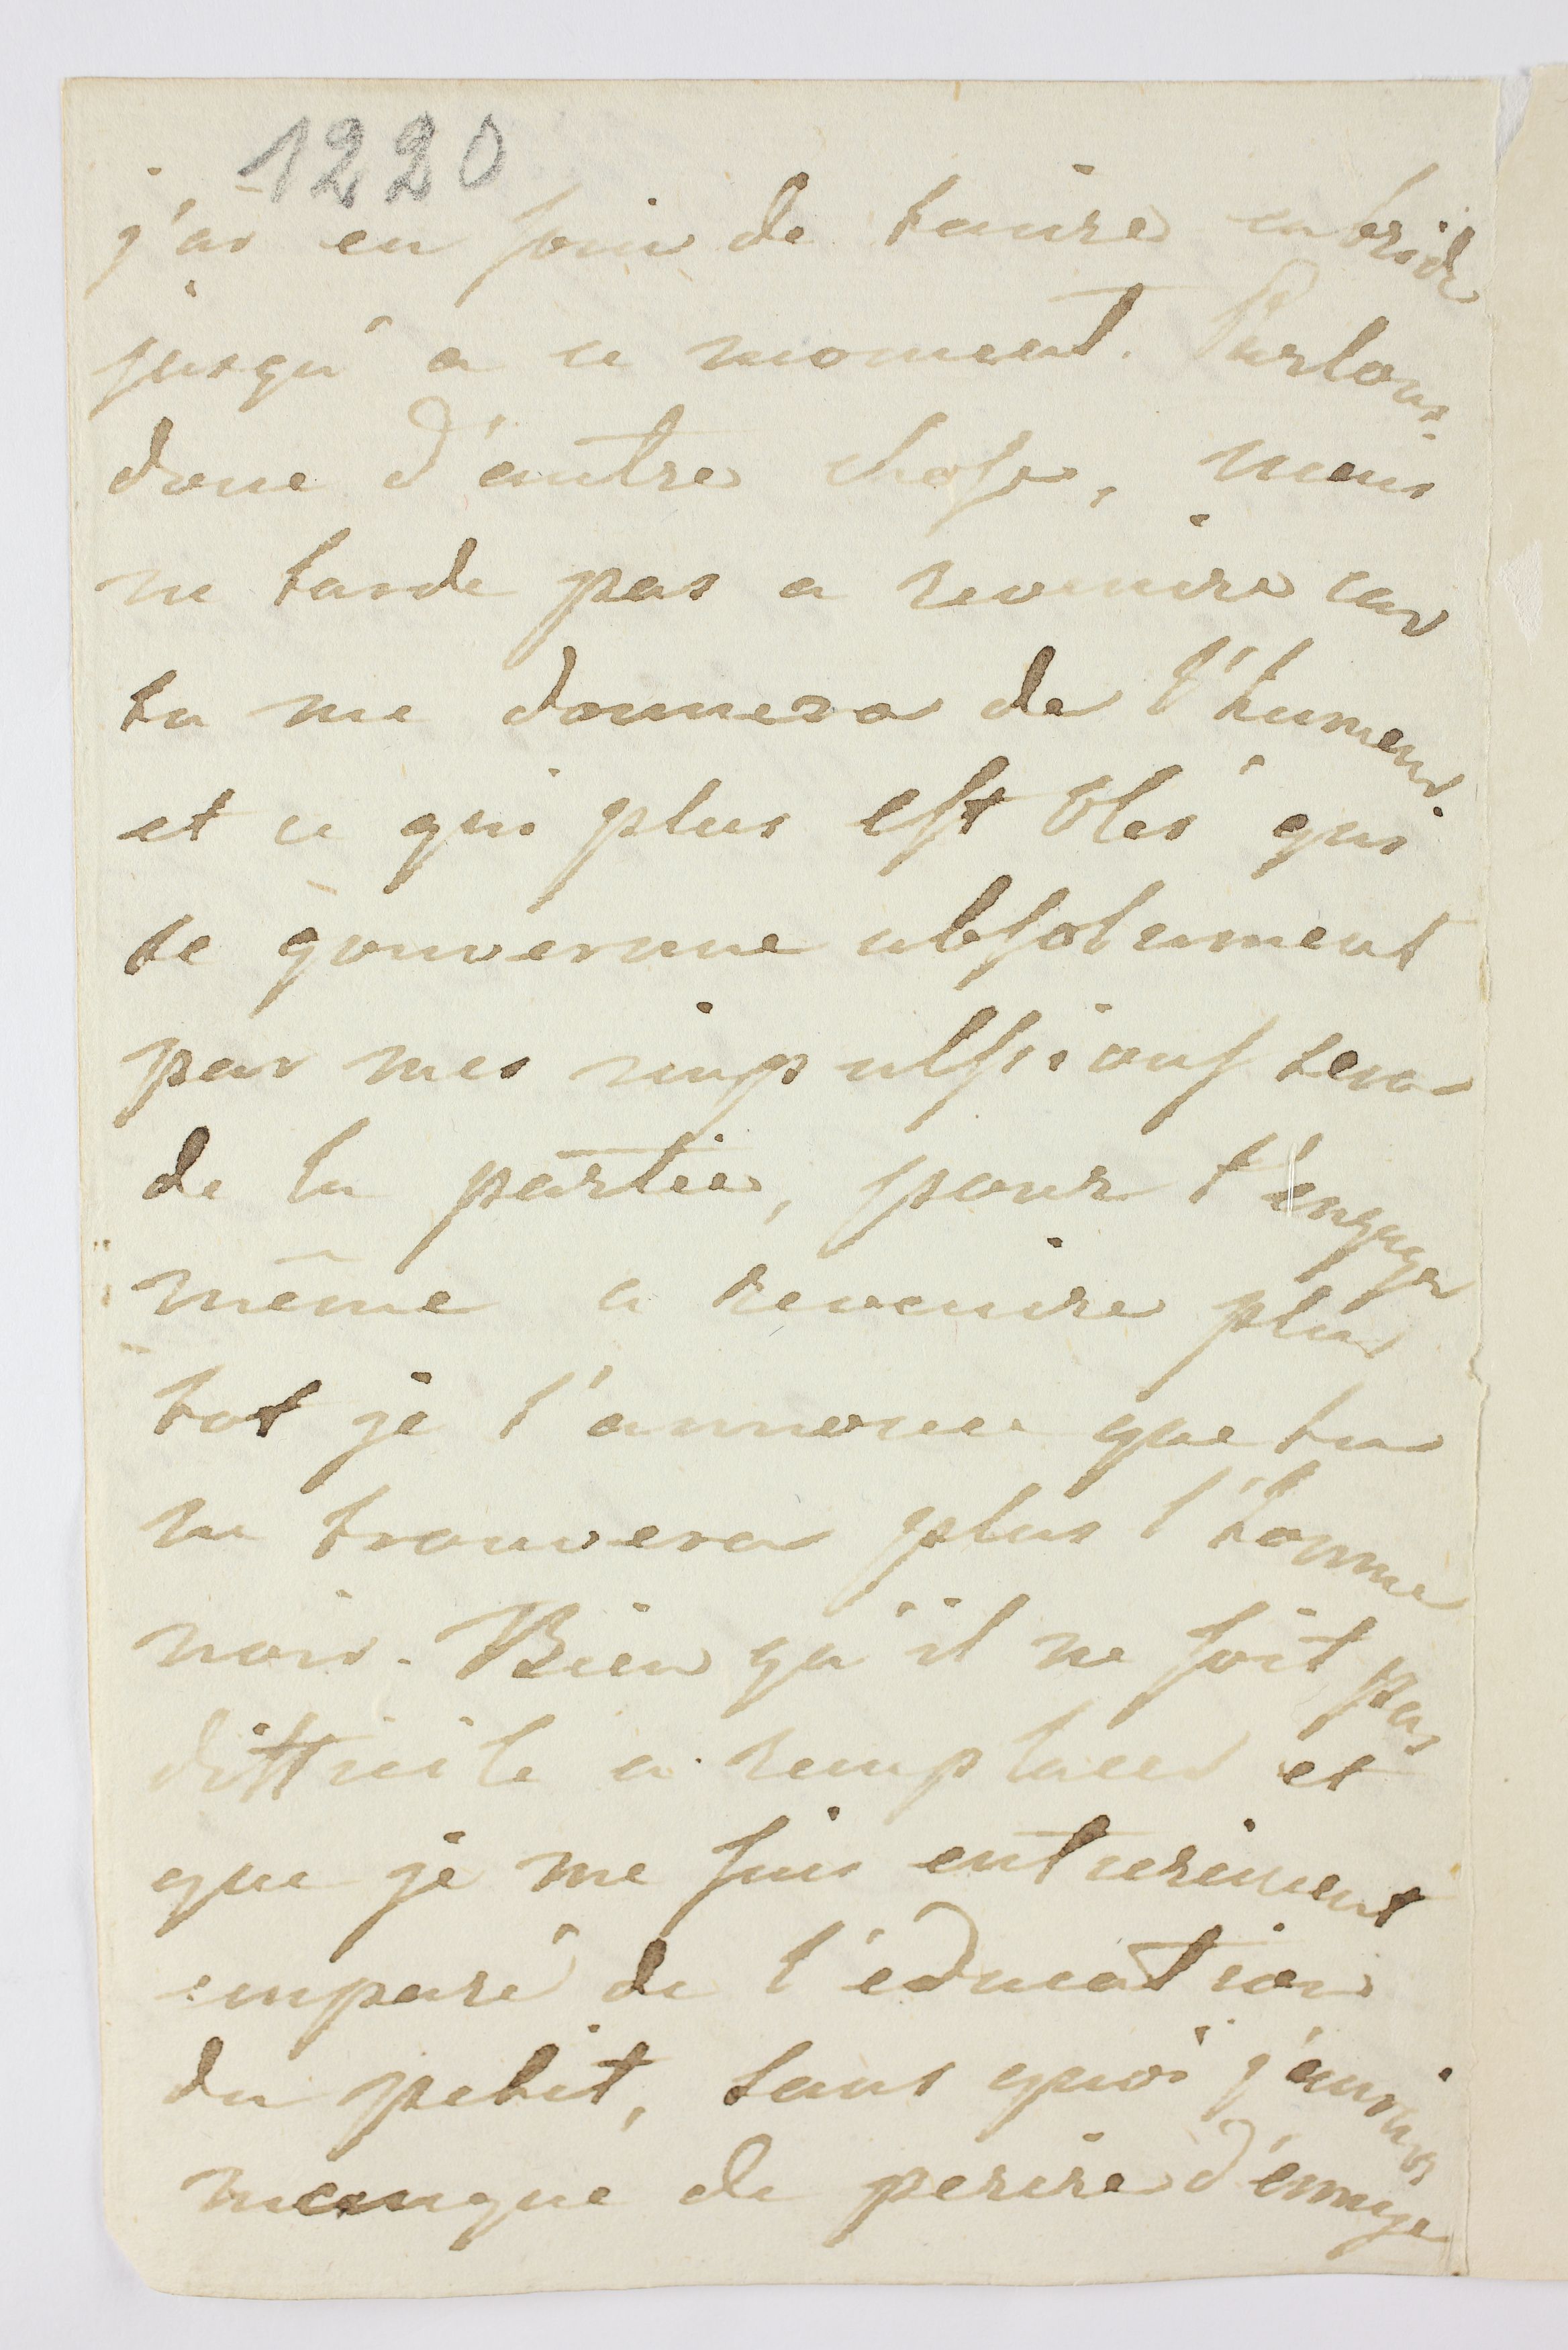 1220
j'ai eu soin de tenire en bride
jusqu'a ce moment. Parlons
donc d'autre chose, mais
ne tarde pas a revenire car
tu me donnera de l'humeur
et ce qui plus est Oles qui
se gouverne absolument
par mes impulsions sera
de la partie, pour t'engager
même a revenire plus
tot je t'annonce que tu
ne trouvera plus l'homme
noir. Bien qu'il ne soit pas
difficile a remplacer et
que je me suis entierement
emparé de l'éducation
du petit, sans quoi j'aurais
manqué de perire d'ennuye